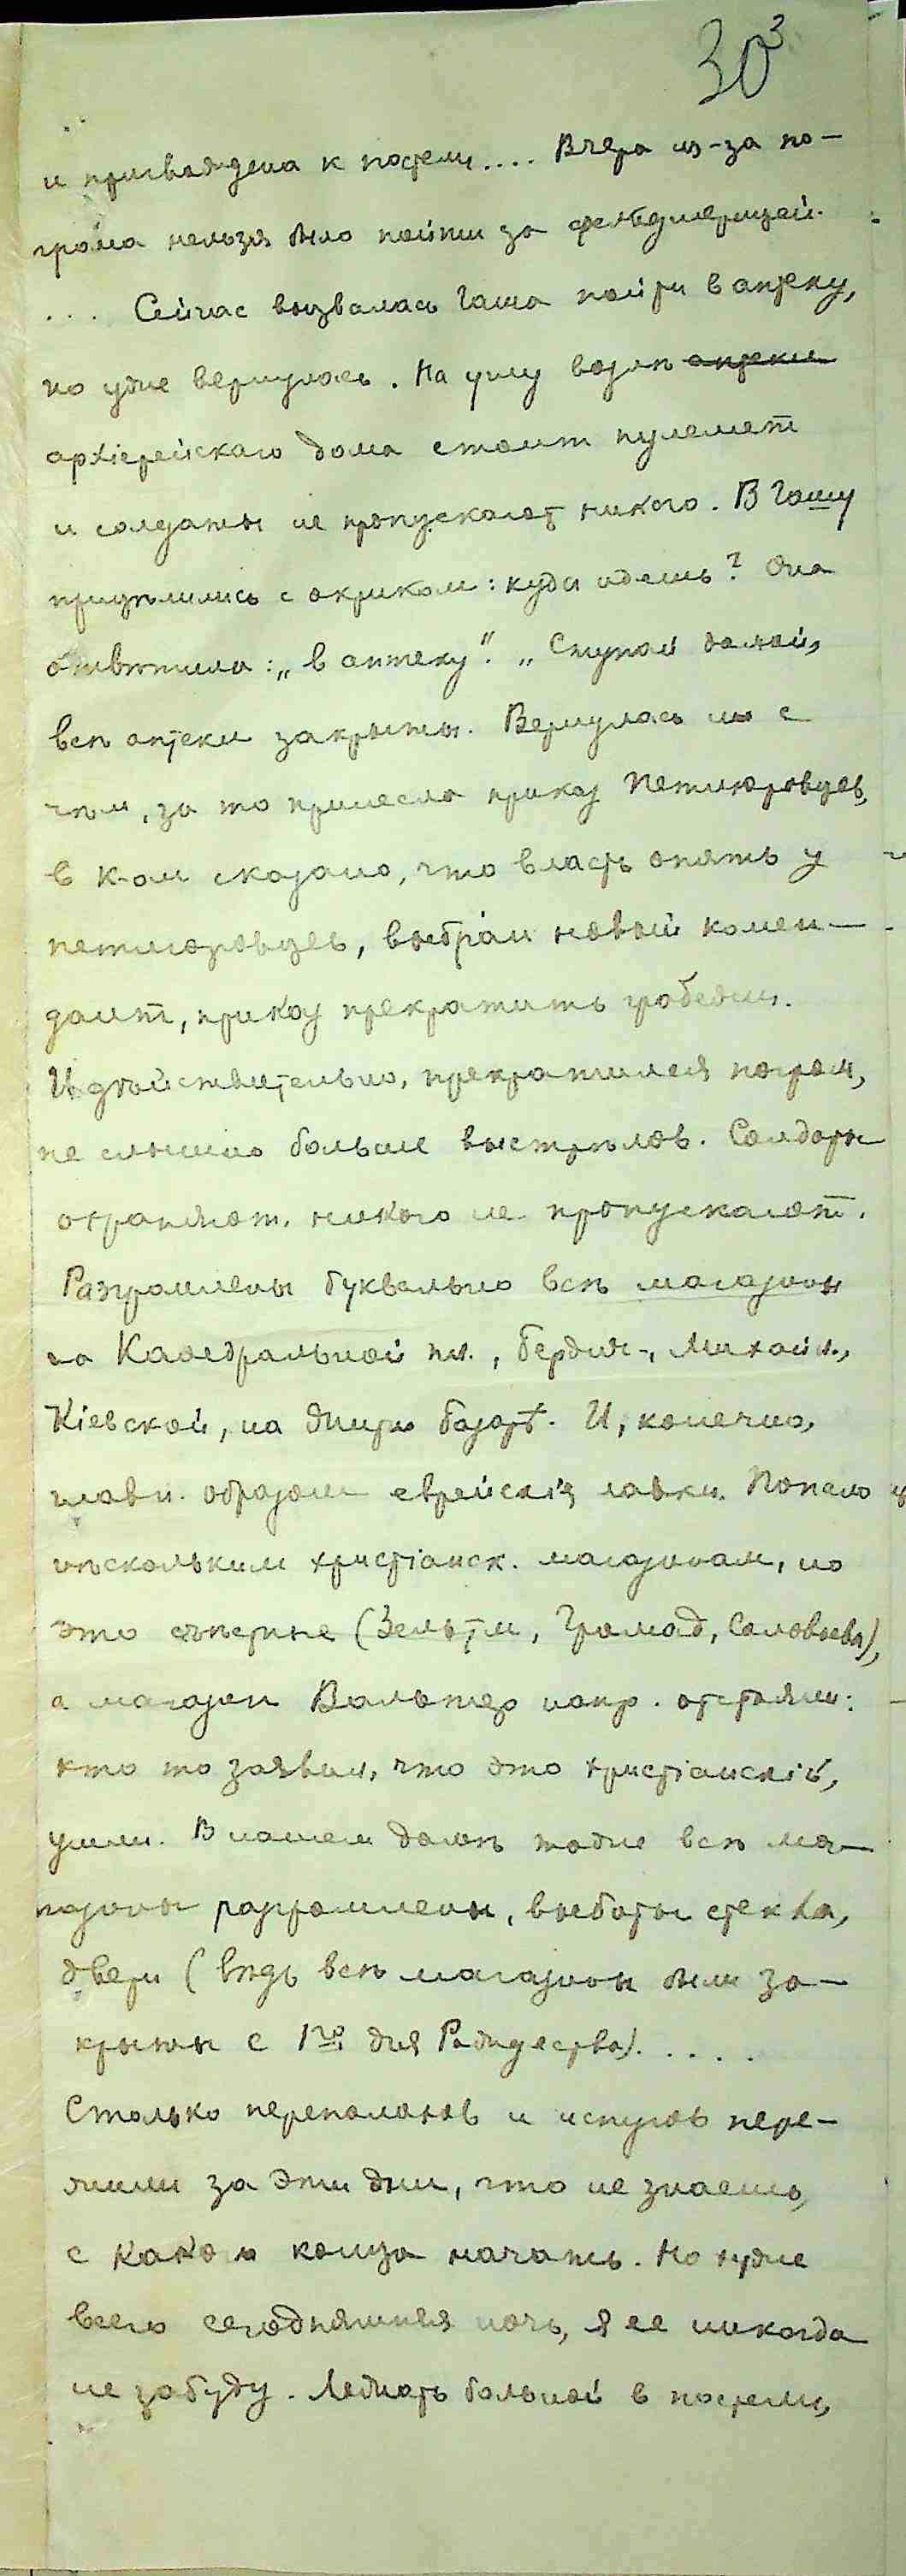 30³
и пригвождена к постели.... Вчера из-за по-
грома нельзя было пойти за фельдшерицей.
... Сейчас вызвалась Гаша пойти в аптеку,
но уже вернулась. На углу возлѣ аптеки
архіерейскаго дома стоит пулемет
и солдаты не пропускают никого. В Гашу
прицѣлились с окриком: куда идешь? Она
отвѣтила: „в аптеку". „Ступай домой,
всѣ аптеки закрыты. Вернулась ни с
чѣм, за то принесла приказ Петлюровцев,
в к-ом сказано, что власть опять у
петлюровцев, выбран новый комен-
дант, приказ прекратить грабежи.
И дѣйствительно, прекратился погром,
не слышно больше выстрѣлов. Солдаты
охраняют, никого не пропускают.
Разгромлены буквально всѣ магазины
на Кафедральной пл., Бердич., Михайл.,
Кіевской, на Житн. базарѣ. И, конечно,
главн. образом еврейскія лавки. Попало и
нѣскольким христіанск. магазинам, но
это (Громад, Соловьева),
а магазин Вальтер напр. отстояли:
кто то заявил, что это христіанскій,
ушли. В нашем домѣ тоже всѣ ма-
газины разгромлены, выбиты стекла,
двери (вѣдь всѣ магазины были за-
крыты с 1го дня Рождества).....
Столько переполохов и испугов пере-
жили за эти дни, что не знаешь,
с какого конца начать. Но хуже
всего сегодняшняя ночь, я ее никогда
не забуду. Лежать больной в постели,